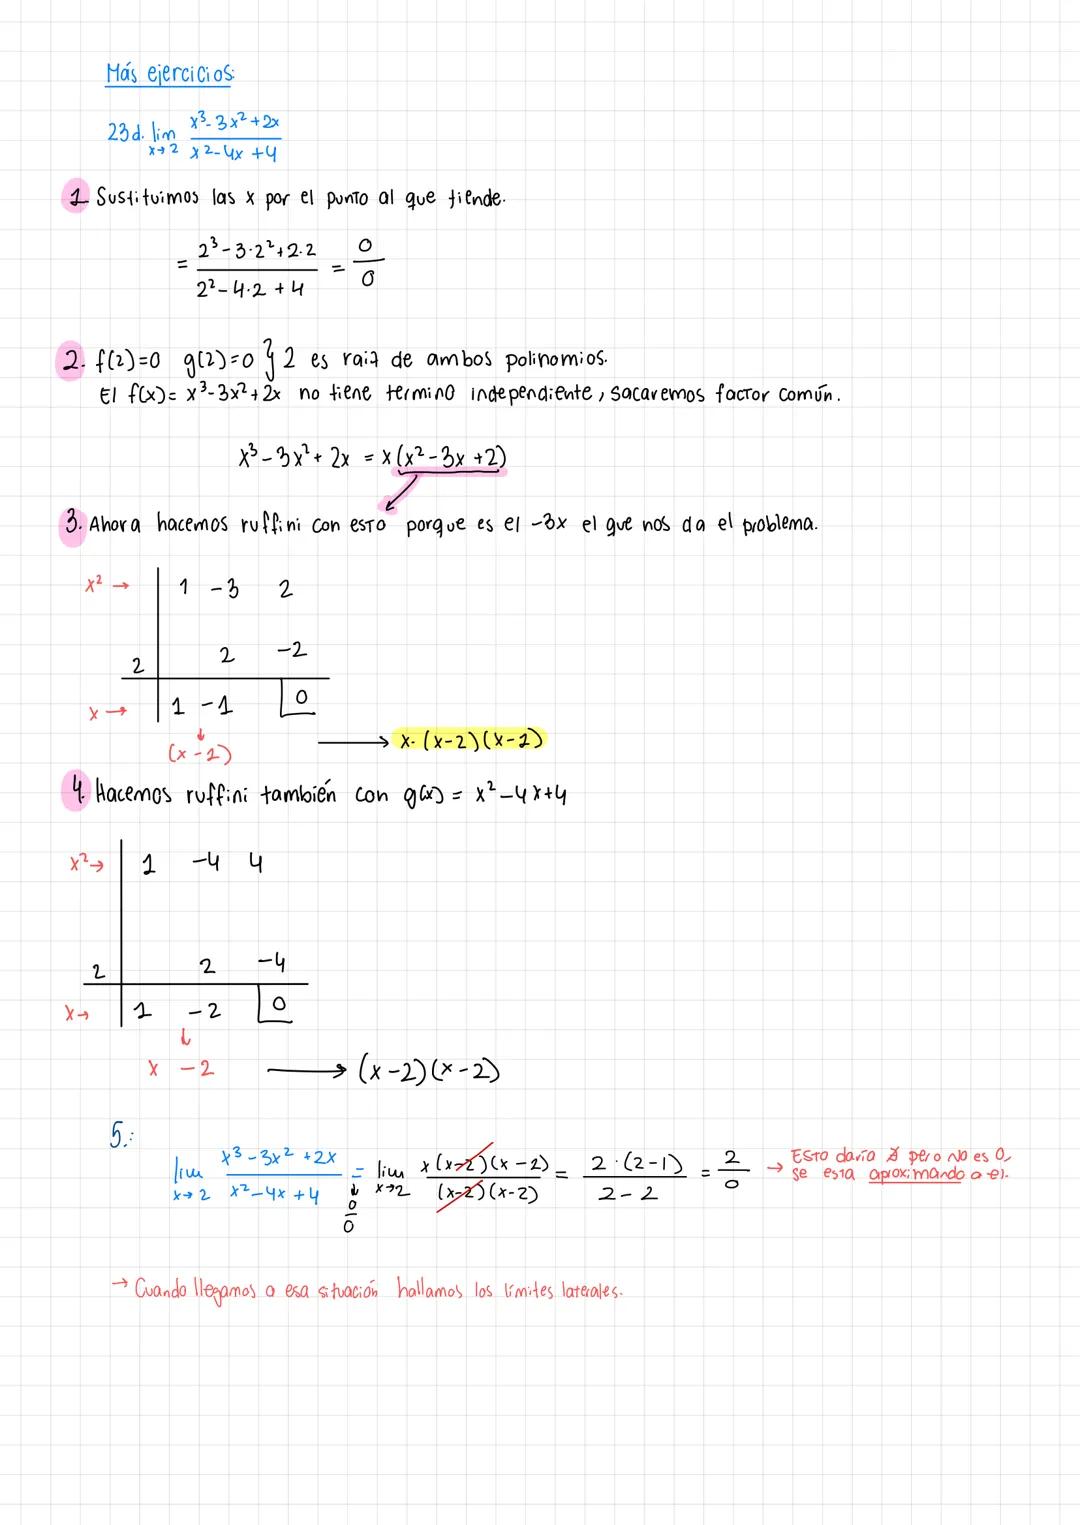 Más ejercicios:
23d. lim x→2 (x³-3x²+2x)/(x²-4x+4)
1 Sustituimos las x por el punto al que tiende.
= (2³-3·2²+2·2)/(2²-4·2+4) = 0/0
2. f(2)=0 g(2)=0 } 2 es raiz de ambos polinomios.
El f(x)= x³-3x²+2x no tiene termino independiente, sacaremos factor común.
x³-3x²+2x = x(x²-3x+2)
3. Ahora hacemos ruffini con esto porque es el -3x el que nos da el problema.
x² → 1 -3 2
2 2 -2
x → 1 -1 0
(x-1) → x·(x-2)(x-1)
4. Hacemos ruffini también con g(x) = x²-4x+4
x² → 1 -4 4
2 2 -4
x → 1 -2 0
x -2 → (x-2)(x-2)
5.:
lim x→2 (x³-3x²+2x)/(x²-4x+4) = 0/0 lim x→2 x(x-2)(x-1)/(x-2)(x-2) = 2·(2-1)/2-2 = 2/0 → Esto daría ∄ pero no es 0,
se esta aproximando a el.
→ Cuando llegamos a esa situación hallamos los límites laterales.